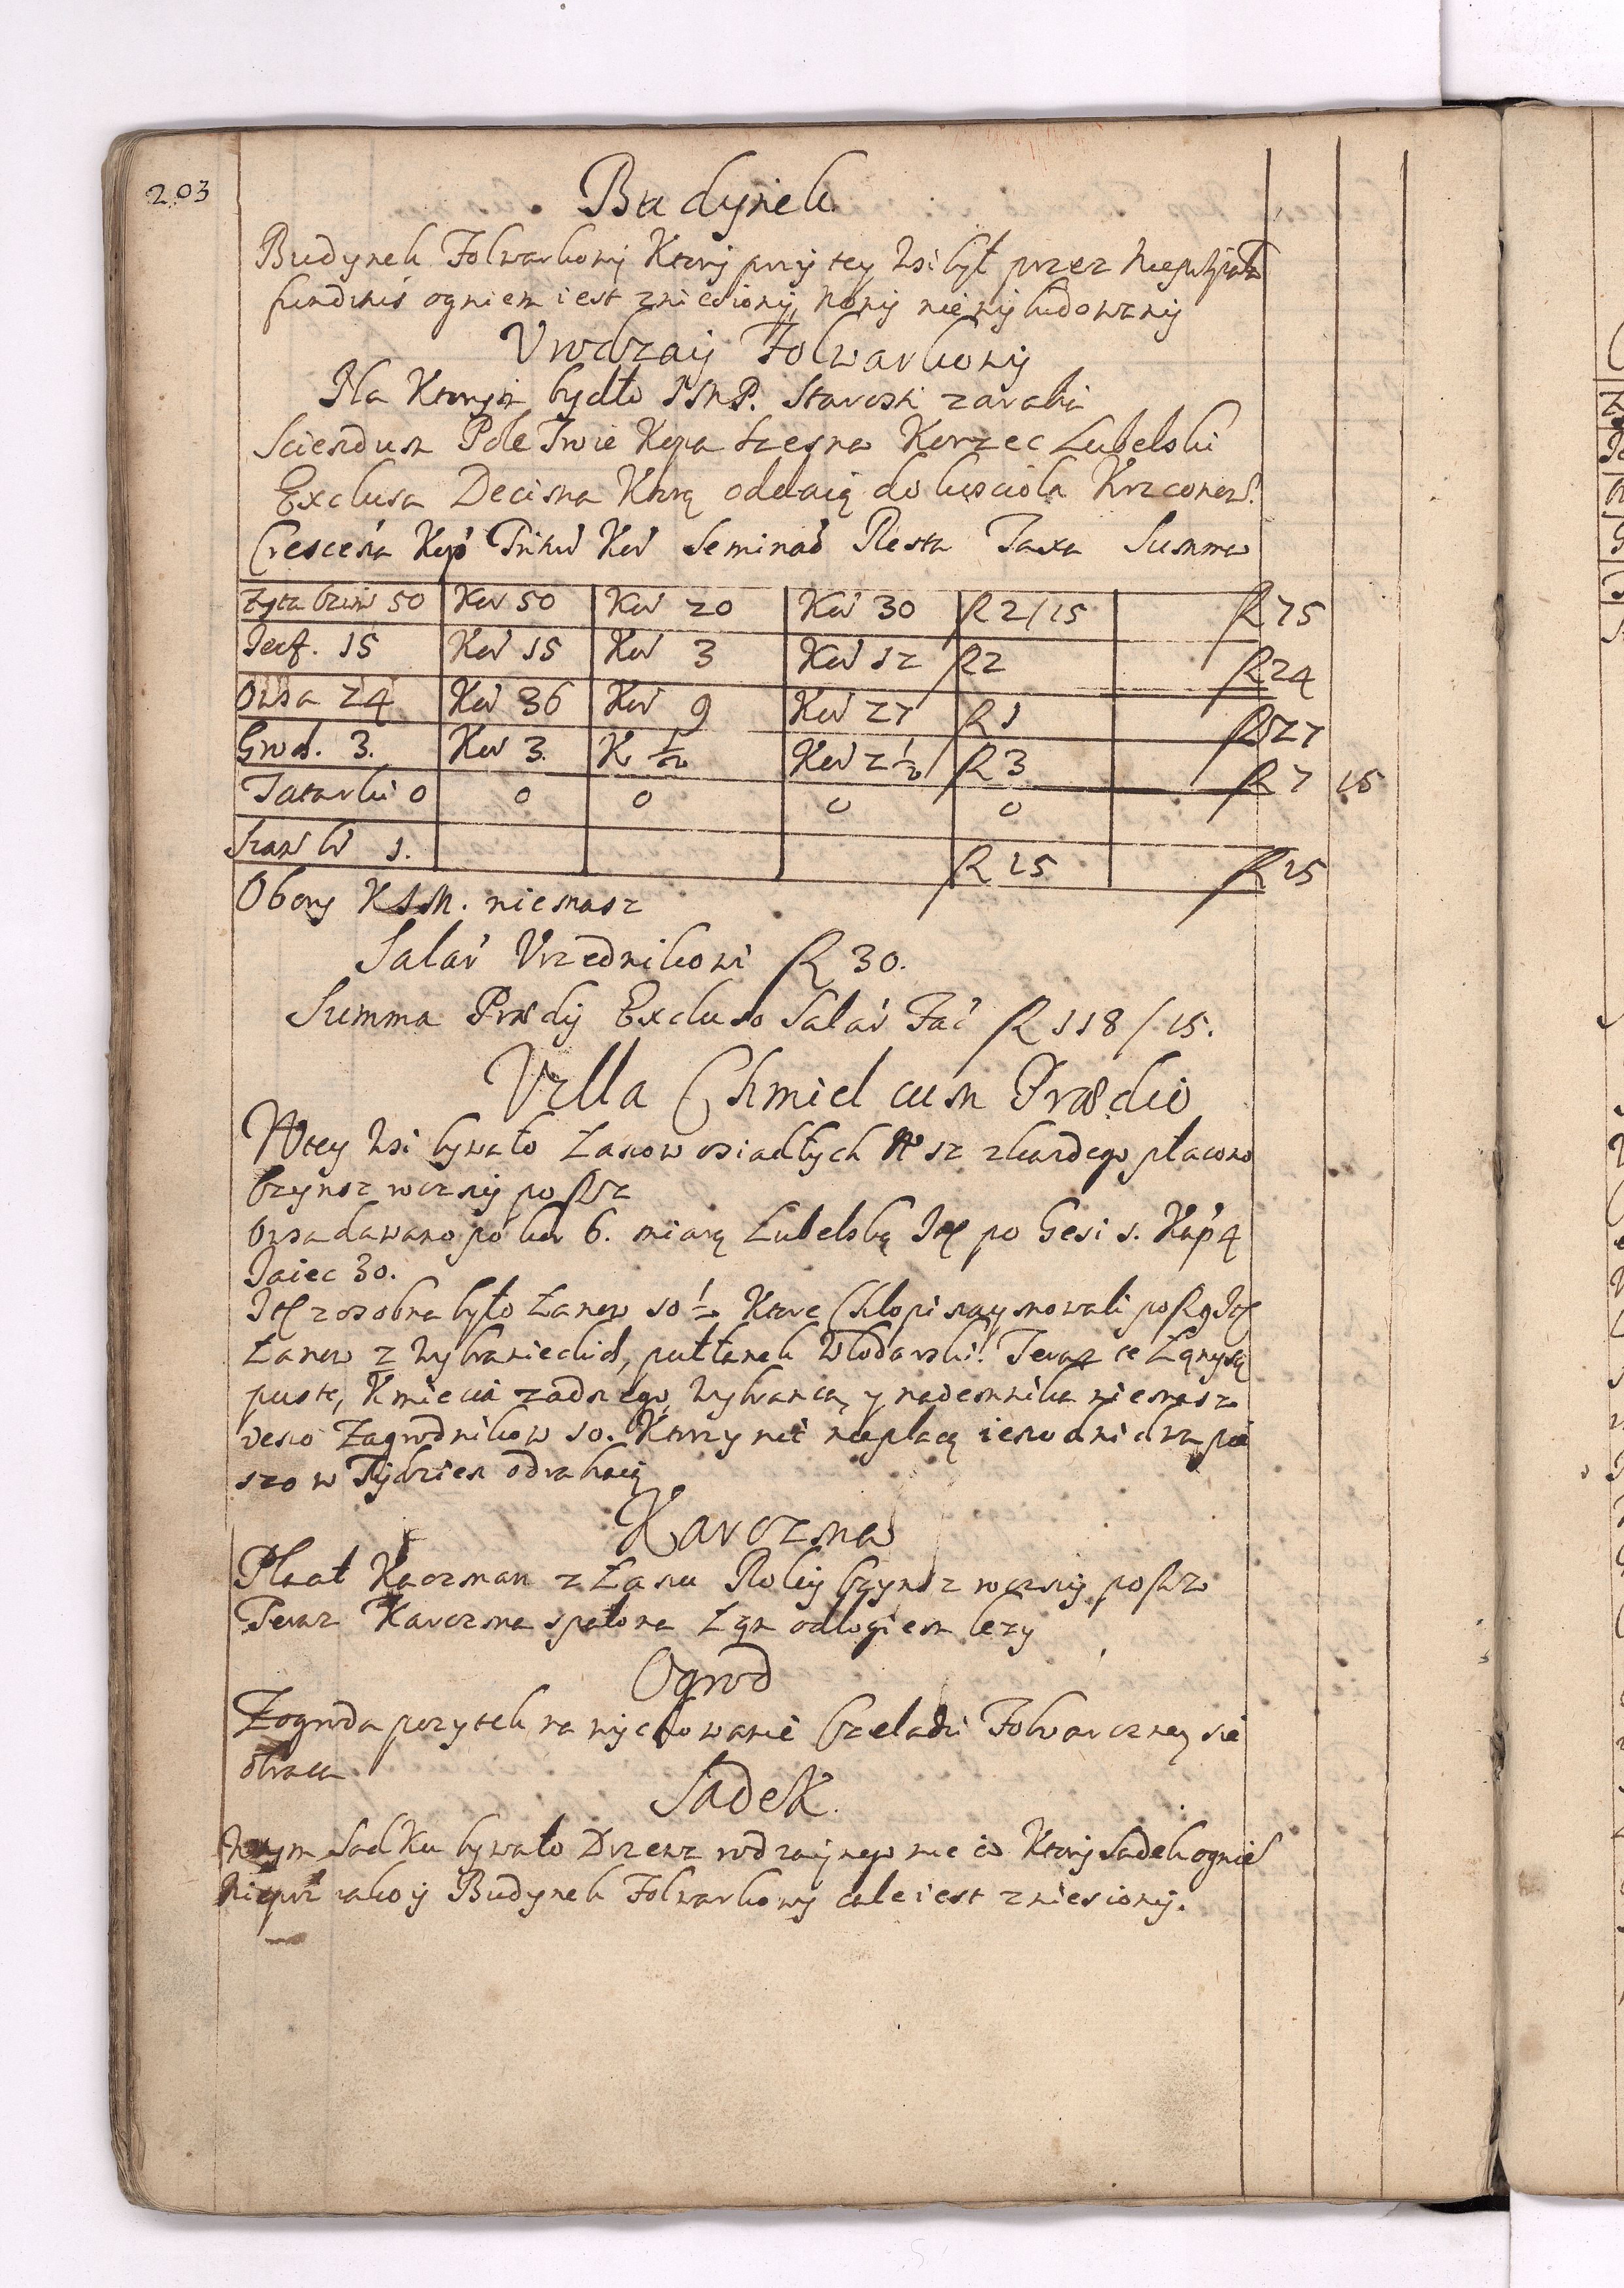 203
Budynek
Budynek Folwarkowy Ktory przy tey Wsi był przez Nieprzyiaciela
funditus ogniem iest zniesiony, Nowy nie wybudowany
Vrodzaiy Folwarkowy
Na Ktorym bydło JMP. Starosti zarabia
Sciendum Pole Troie Kopa czesna Korzec Lubelski
Exclusa Decima Ktorą oddaią do kosciola Krzconow:
Crescen Kop Tritur Kor Seminat Resta Taxa Summa
Zyta Ozim 50 Kor 50 Kor 20 Kor 30 R 2/15 R 75
Jecz. 15 Kor 15 Kor 3 Kor 12 R 2 R 24
Owsa 24 Kor 36 Kor 9 Kor 27 R 1 R 27
Groch. 3. Kor 3. K ½ Kor 2½ R 3 R 7 15
Tatarki 0 0 0 0 0
Sian W 1. R 15 R 15
Obory KJM. niemasz
Salar Vrzednikowi R 30.
Summa Prædij Excluso Salar Fac R 118/15.
Villa Chmiel cum Prædio
W tey Wsi bywało Łanow osiadłych 12 zkazdego płacono
Czynsz roczny po R 2
Owsa dawano po kor 6. miarą Lubelską It po Gesi 1. Kap 4
Jaiec 30.
It zosobna było Łanow 10 ½ Ktore Chłopi naymowali po R 9 It
Łanow z Wybranieckich, pułłanek Włodarski. Teraz te Łany są
puste, Kmiecia zadnego, Wybranca, y naiemnika niemasz
Zagrodnikow 10. Ktorzy nic niepłacą ieno dni dwa pie
szo w Tydzien odrabiaią
Karczma
Płacał Kaczmarz z Łanu Roley Czynsz roczny po R 2
Teraz Karczma spalona Łan odłogiem lezy
Ogrod
Z ogroda pozytek na wychowanie Czeladzi Folwarczney sie
obraca
Sadek
W tym Sadku bywało Drzewa rodzaynego nie co Ktory Sadek ogniem
Nieprz iako y Budynek Folwarkowy cale iest zniesiony.